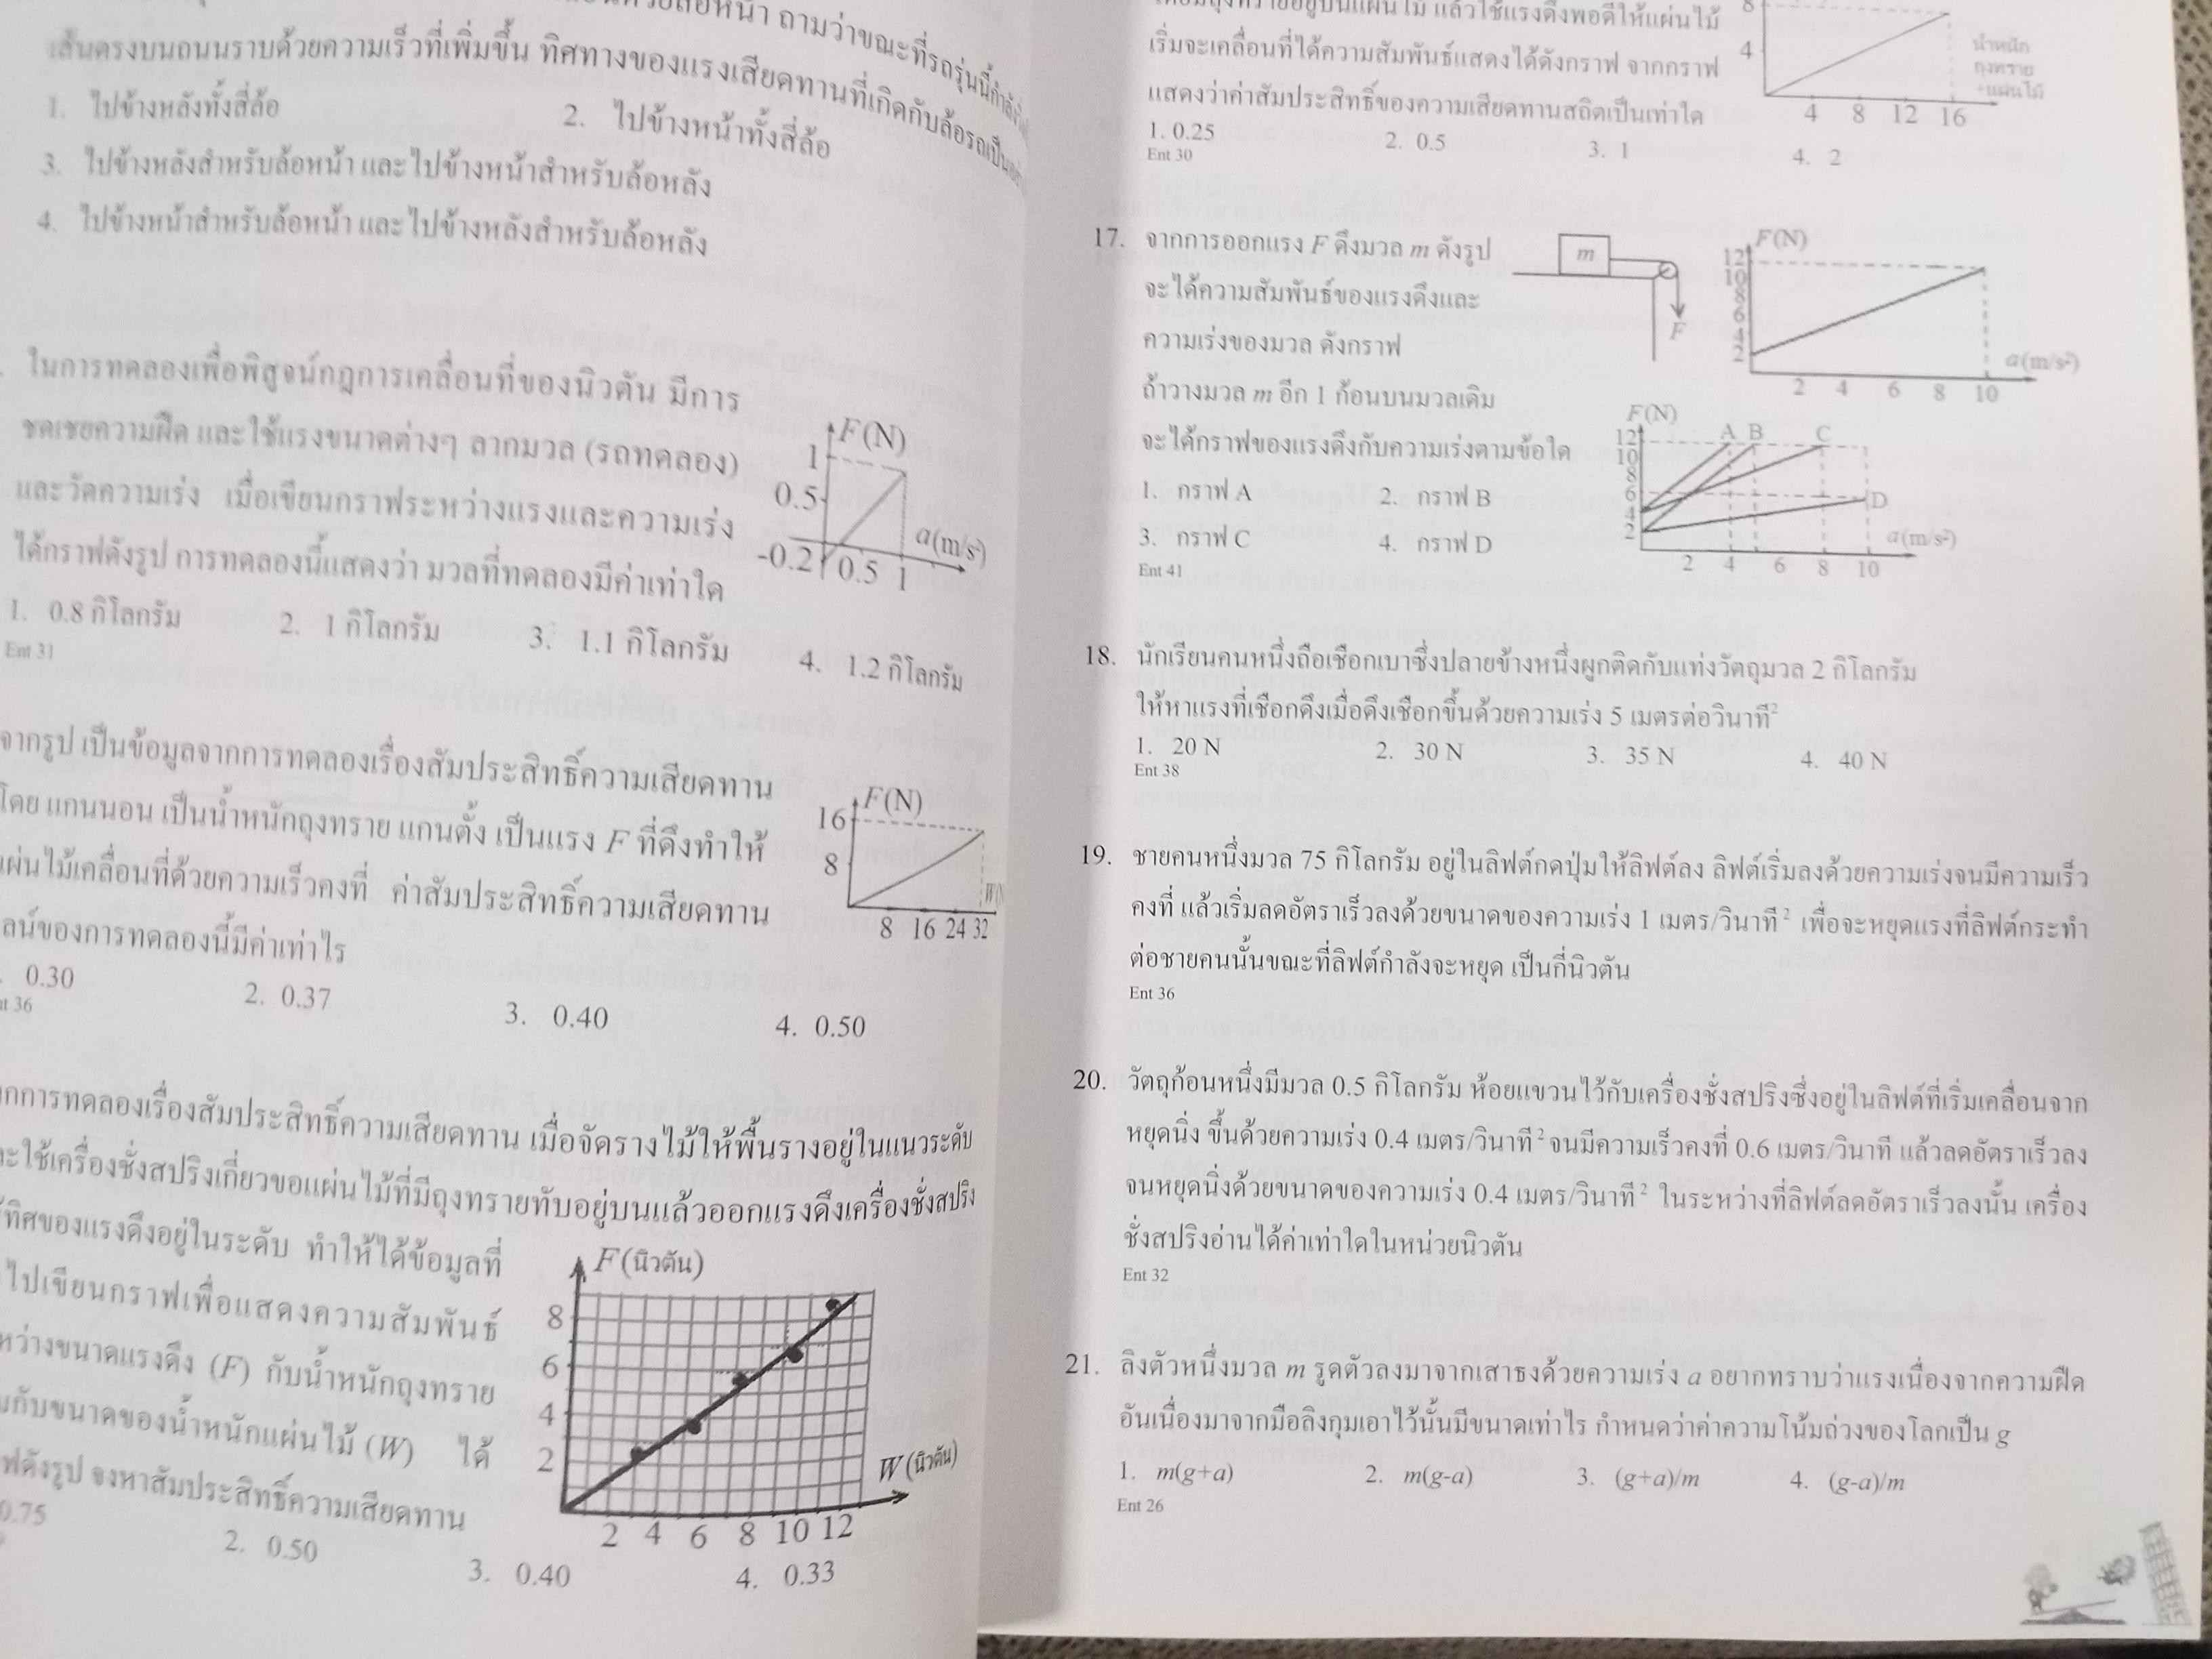 ถามว่าขณะที่รถรุ่นนี้กำลัง
เส้นตรงบนถนนราบด้วยความเร็วที่เพิ่มขึ้น ทิศทางของแรงเสียดทานที่เกิดกับล้อรถเป็น
1. ไปข้างหลังทั้งสี่ล้อ
2. ไปข้างหน้าทั้งสี่ล้อ
3. ไปข้างหลังสำหรับล้อหน้า และไปข้างหน้าสำหรับล้อหลัง
4. ไปข้างหน้าสำหรับล้อหน้า และไปข้างหลังสำหรับล้อหลัง
ในการทดลองเพื่อพิสูจน์กฎการเคลื่อนที่ของนิวตัน มีการ
ชดเชยความฝืด และใช้แรงขนาดต่างๆ ลากมวล (รถทดลอง)
และวัดความเร่ง เมื่อเขียนกราฟระหว่างแรงและความเร่ง
ได้กราฟดังรูป การทดลองนี้แสดงว่า มวลที่ทดลองมีค่าเท่าใด
F(N)
1
0.5
-0.2
0.5 1
a(m/s²)
1. 0.8 กิโลกรัม 2. 1 กิโลกรัม 3. 1.1 กิโลกรัม 4. 1.2 กิโลกรัม
Ent 31
จากรูป เป็นข้อมูลจากการทดลองเรื่องสัมประสิทธิ์ความเสียดทาน
โดย แกนนอน เป็นน้ำหนักถุงทราย แกนตั้ง เป็นแรง F ที่ดึงทำให้
แผ่นไม้เคลื่อนที่ด้วยความเร็วคงที่ ค่าสัมประสิทธิ์ความเสียดทาน
ลน์ของการทดลองนี้มีค่าเท่าไร
F(N)
16
8
8 16 24 32
0.30 2. 0.37 3. 0.40 4. 0.50
36
กการทดลองเรื่องสัมประสิทธิ์ความเสียดทาน เมื่อจัดรางไม้ให้พื้นรางอยู่ในแนวระดับ
ะใช้เครื่องชั่งสปริงเกี่ยวขอแผ่นไม้ที่มีถุงทรายทับอยู่บนแล้วออกแรงดึงเครื่องชั่งสปริง
ทิศของแรงดึงอยู่ในระดับ ทำให้ได้ข้อมูลที่
ไปเขียนกราฟเพื่อแสดงความสัมพันธ์
หว่างขนาดแรงดึง (F) กับน้ำหนักถุงทราย
มกับขนาดของน้ำหนักแผ่นไม้ (W) ได้
ฟดังรูป จงหาสัมประสิทธิ์ความเสียดทาน
F (นิวตัน)
8
6
4
2
2 4 6 8 10 12
W (นิวตัน)
0.75 2. 0.50 3. 0.40 4. 0.33
แล้วใช้แรงดึงพอดีให้แผ่นไม้
เริ่มจะเคลื่อนที่ได้ความสัมพันธ์แสดงได้ดังกราฟ จากกราฟ
แสดงว่าค่าสัมประสิทธิ์ของความเสียดทานสถิตเป็นเท่าใด
8
4
4 8 12 16
น้ำหนัก
ถุงทราย
+แผ่นไม้
1. 0.25 2. 0.5 3. 1 4. 2
Ent 30
17. จากการออกแรง F ดึงมวล m ดังรูป
จะได้ความสัมพันธ์ของแรงดึงและ
ความเร่งของมวล ดังกราฟ
ถ้าวางมวล m อีก 1 ก้อนบนมวลเดิม
จะได้กราฟของแรงดึงกับความเร่งตามข้อใด
1. กราฟ A 2. กราฟ B
3. กราฟ C 4. กราฟ D
Ent 41
m
F
F(N)
12
10
8
6
4
2
2 4 6 8 10
a(m/s²)
F(N)
12
10
8
6
4
2
A B C
D
2 4 6 8 10
a(m/s²)
18. นักเรียนคนหนึ่งถือเชือกเบาซึ่งปลายข้างหนึ่งผูกติดกับแท่งวัตถุมวล 2 กิโลกรัม
ให้หาแรงที่เชือกดึงเมื่อดึงเชือกขึ้นด้วยความเร่ง 5 เมตรต่อวินาที²
1. 20 N 2. 30 N 3. 35 N 4. 40 N
Ent 38
19. ชายคนหนึ่งมวล 75 กิโลกรัม อยู่ในลิฟต์กดปุ่มให้ลิฟต์ลง ลิฟต์เริ่มลงด้วยความเร่งจนมีความเร็ว
คงที่ แล้วเริ่มลดอัตราเร็วลงด้วยขนาดของความเร่ง 1 เมตร/วินาที² เพื่อจะหยุดแรงที่ลิฟต์กระทำ
ต่อชายคนนั้นขณะที่ลิฟต์กำลังจะหยุด เป็นกี่นิวตัน
Ent 36
20. วัตถุก้อนหนึ่งมีมวล 0.5 กิโลกรัม ห้อยแขวนไว้กับเครื่องชั่งสปริงซึ่งอยู่ในลิฟต์ที่เริ่มเคลื่อนจาก
หยุดนิ่ง ขึ้นด้วยความเร่ง 0.4 เมตร/วินาที² จนมีความเร็วคงที่ 0.6 เมตร/วินาที แล้วลดอัตราเร็วลง
จนหยุดนิ่งด้วยขนาดของความเร่ง 0.4 เมตร/วินาที² ในระหว่างที่ลิฟต์ลดอัตราเร็วลงนั้น เครื่อง
ชั่งสปริงอ่านได้ค่าเท่าใดในหน่วยนิวตัน
Ent 32
21. ลิงตัวหนึ่งมวล m รูดตัวลงมาจากเสาธงด้วยความเร่ง a อยากทราบว่าแรงเนื่องจากความฝืด
อันเนื่องมาจากมือลิงกุมเอาไว้นั้นมีขนาดเท่าไร กำหนดว่าค่าความโน้มถ่วงของโลกเป็น g
1. m(g+a) 2. m(g-a) 3. (g+a)/m 4. (g-a)/m
Ent 26